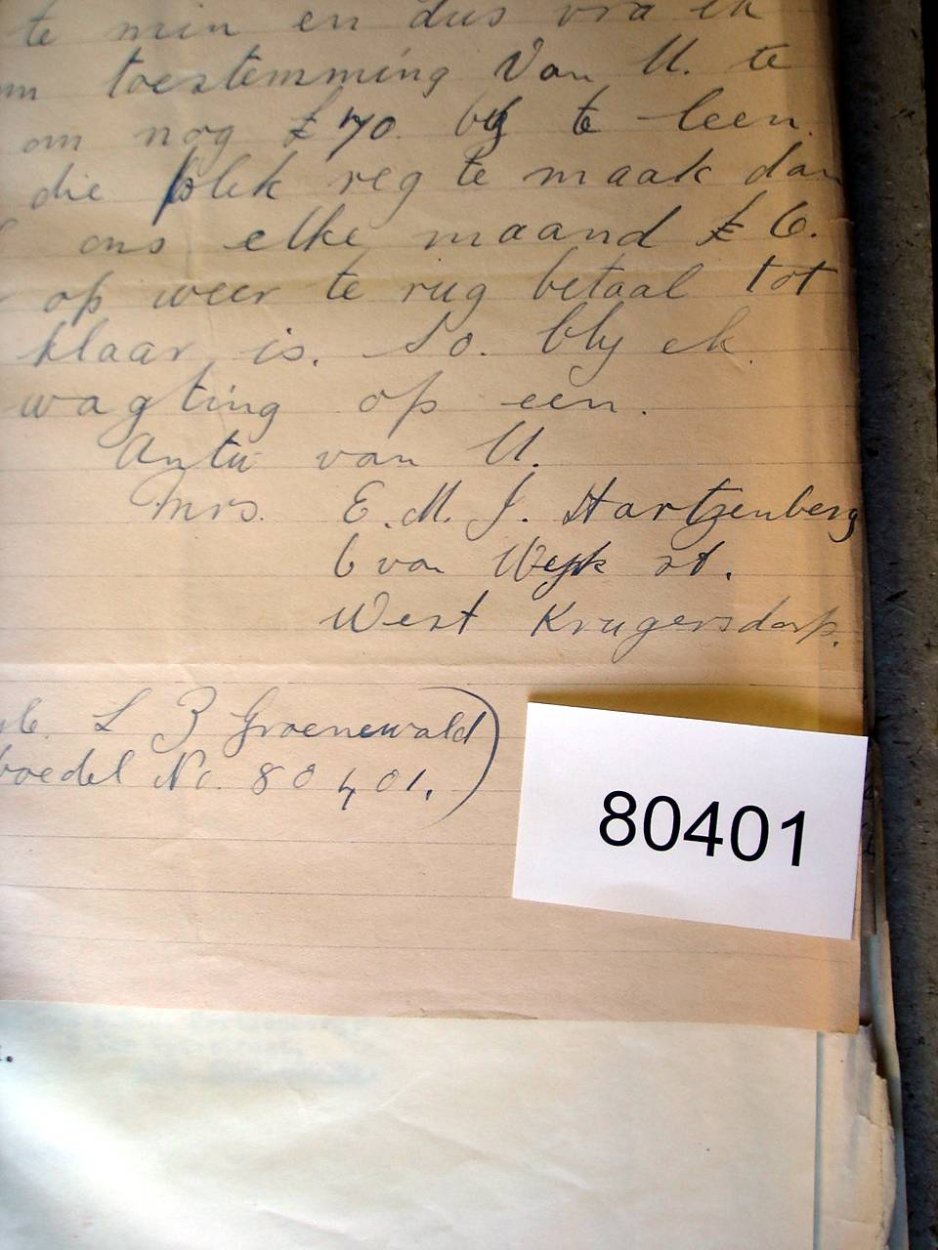 te min en dus vra ek
om toestemming van U. te
om nog £70. by te leen.
die plek reg te maak dan
ons elke maand £6.
op weer te rug betaal tot
klaar is. So. bly ek.
wagting op een.
Antw van U.
Mrs. E. M. J. Hartzenberg
6 van Wyk st.
West Krugersdorp.
L Z Groenewald)
boedel No. 80401.
80401